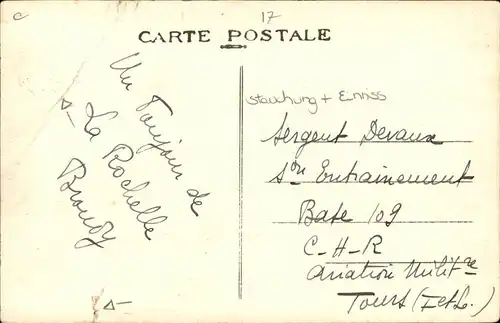 c
17
CARTE POSTALE
Un Toujour de
La Rochelle
Stauchung + Einriss
Sergent Devaux
Son Entrainement
Base 109
C-H-R
Aviation Militre
Tours (I et L.)